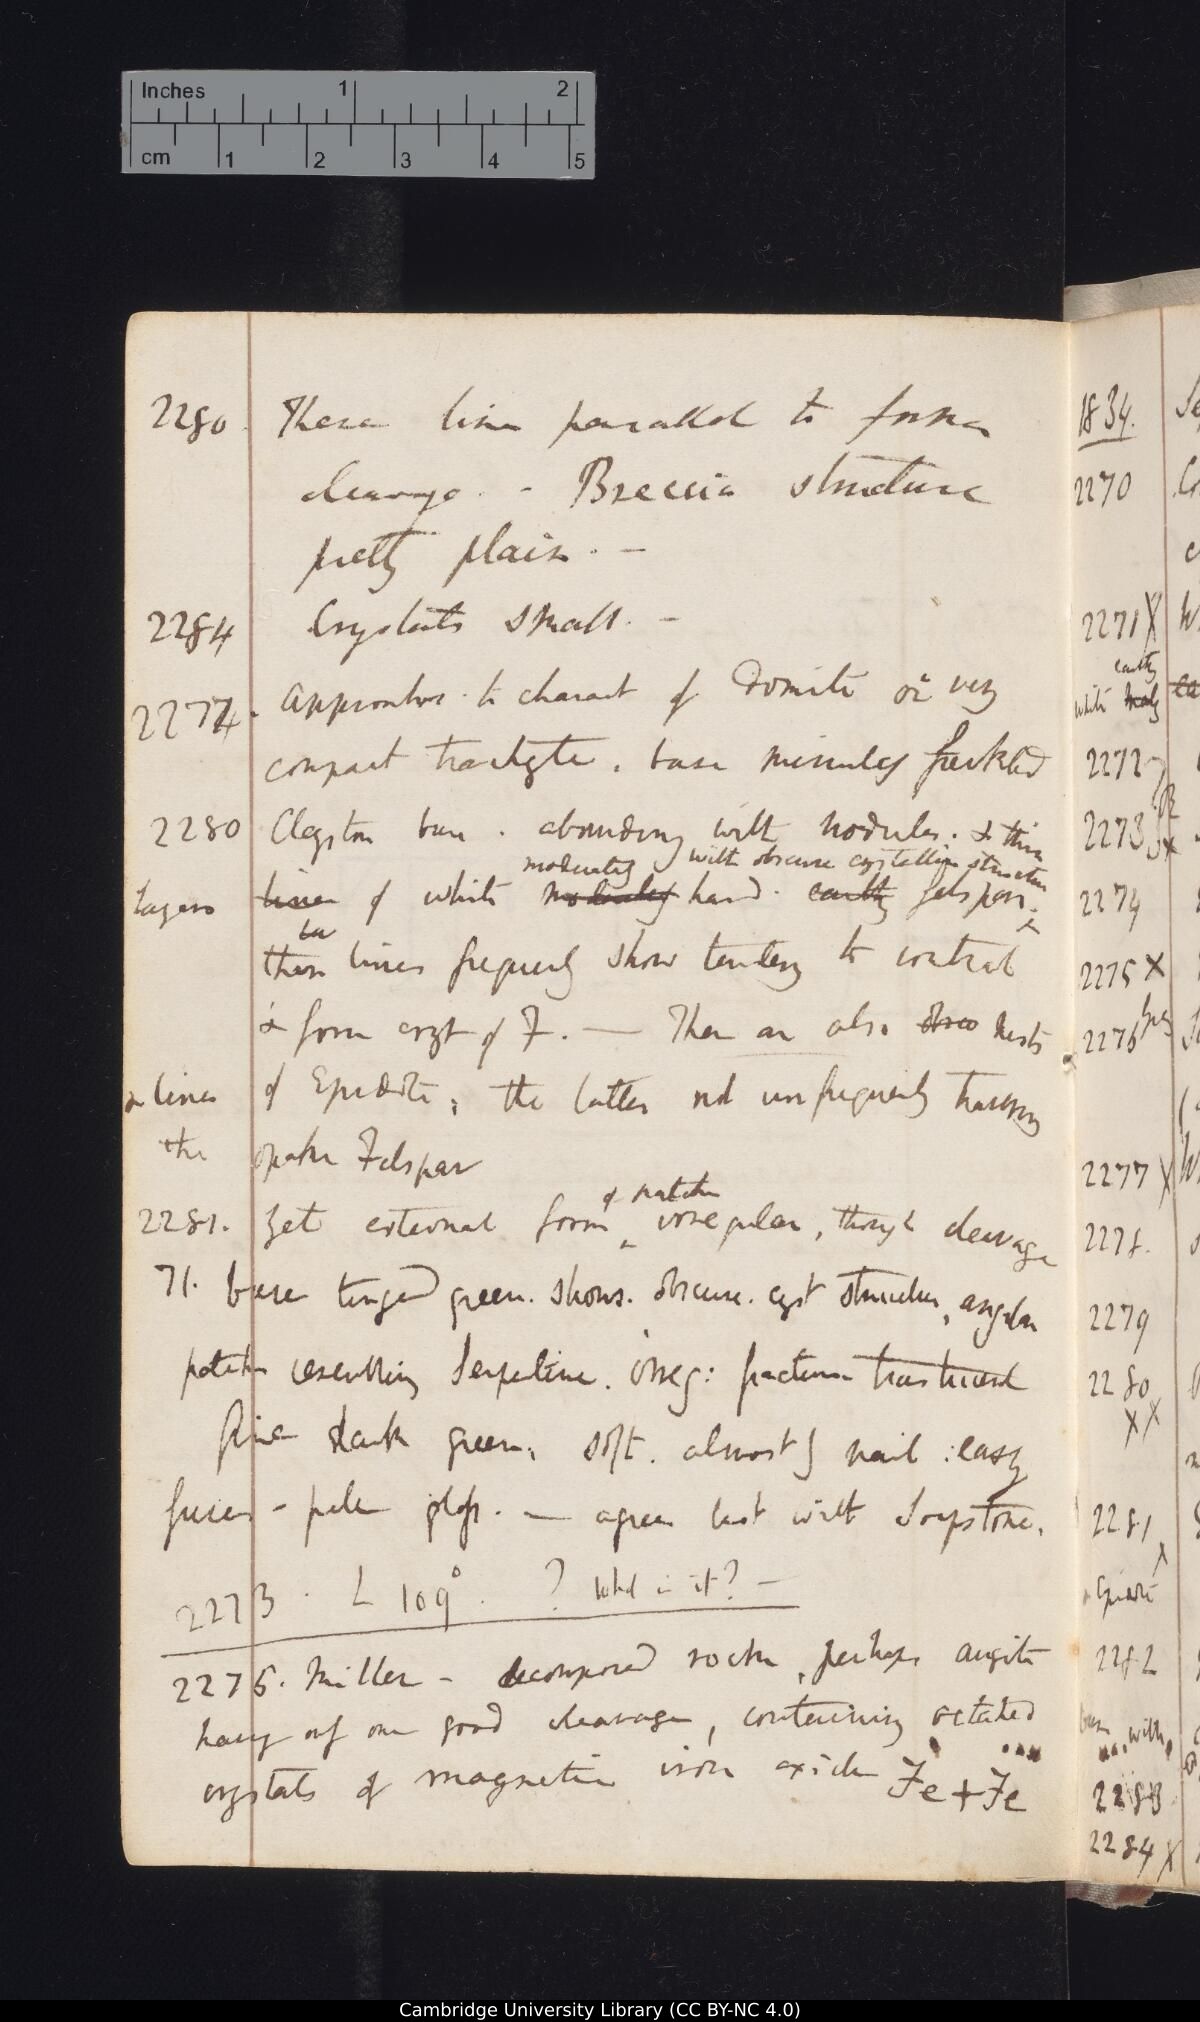 Inches 1 2
cm 1 2 3 4 5
2280 These line parallel to former
cleavage. - Breccia structure
pretty plain. -
2284 Crystals small. -
2274. Approaches to charact of Domite or very
compact trachyte. base minutely freckled
2280 Claystone base. abounding with nodules. & thin
moderately with obscure crystalline structure
layers lines of white moderately hard. earthy felspar. &
these lines frequently show tendency to contract
& form cryst of F. — There are also nests
& lines of Epidote; the latter not unfrequently traversing
the opake Felspar
of patches
2281. Yet external form irregular, though cleavage
71. base tinged green. shows. obscure. cryst structure, angular
patches resembling Serpentine. irreg: fracture translucent
fine dark green; soft. almost nail : easy
fuses - pale glass. — agrees best with Soapstone.
2273. L 109°. ? What is it? —
2276. Miller - decomposed rock, perhaps augite
having only one good cleavage, containing octahed
crystals of magnetic iron oxide Fe + Fe
1834.
2270
2271 X
earthy
white
2272
2273
2274
2275 X
2276
2277 X
2278.
2279
2280
XX
2281
X
Epidote
2282
with
2283
2284 X
Cambridge University Library (CC BY-NC 4.0)